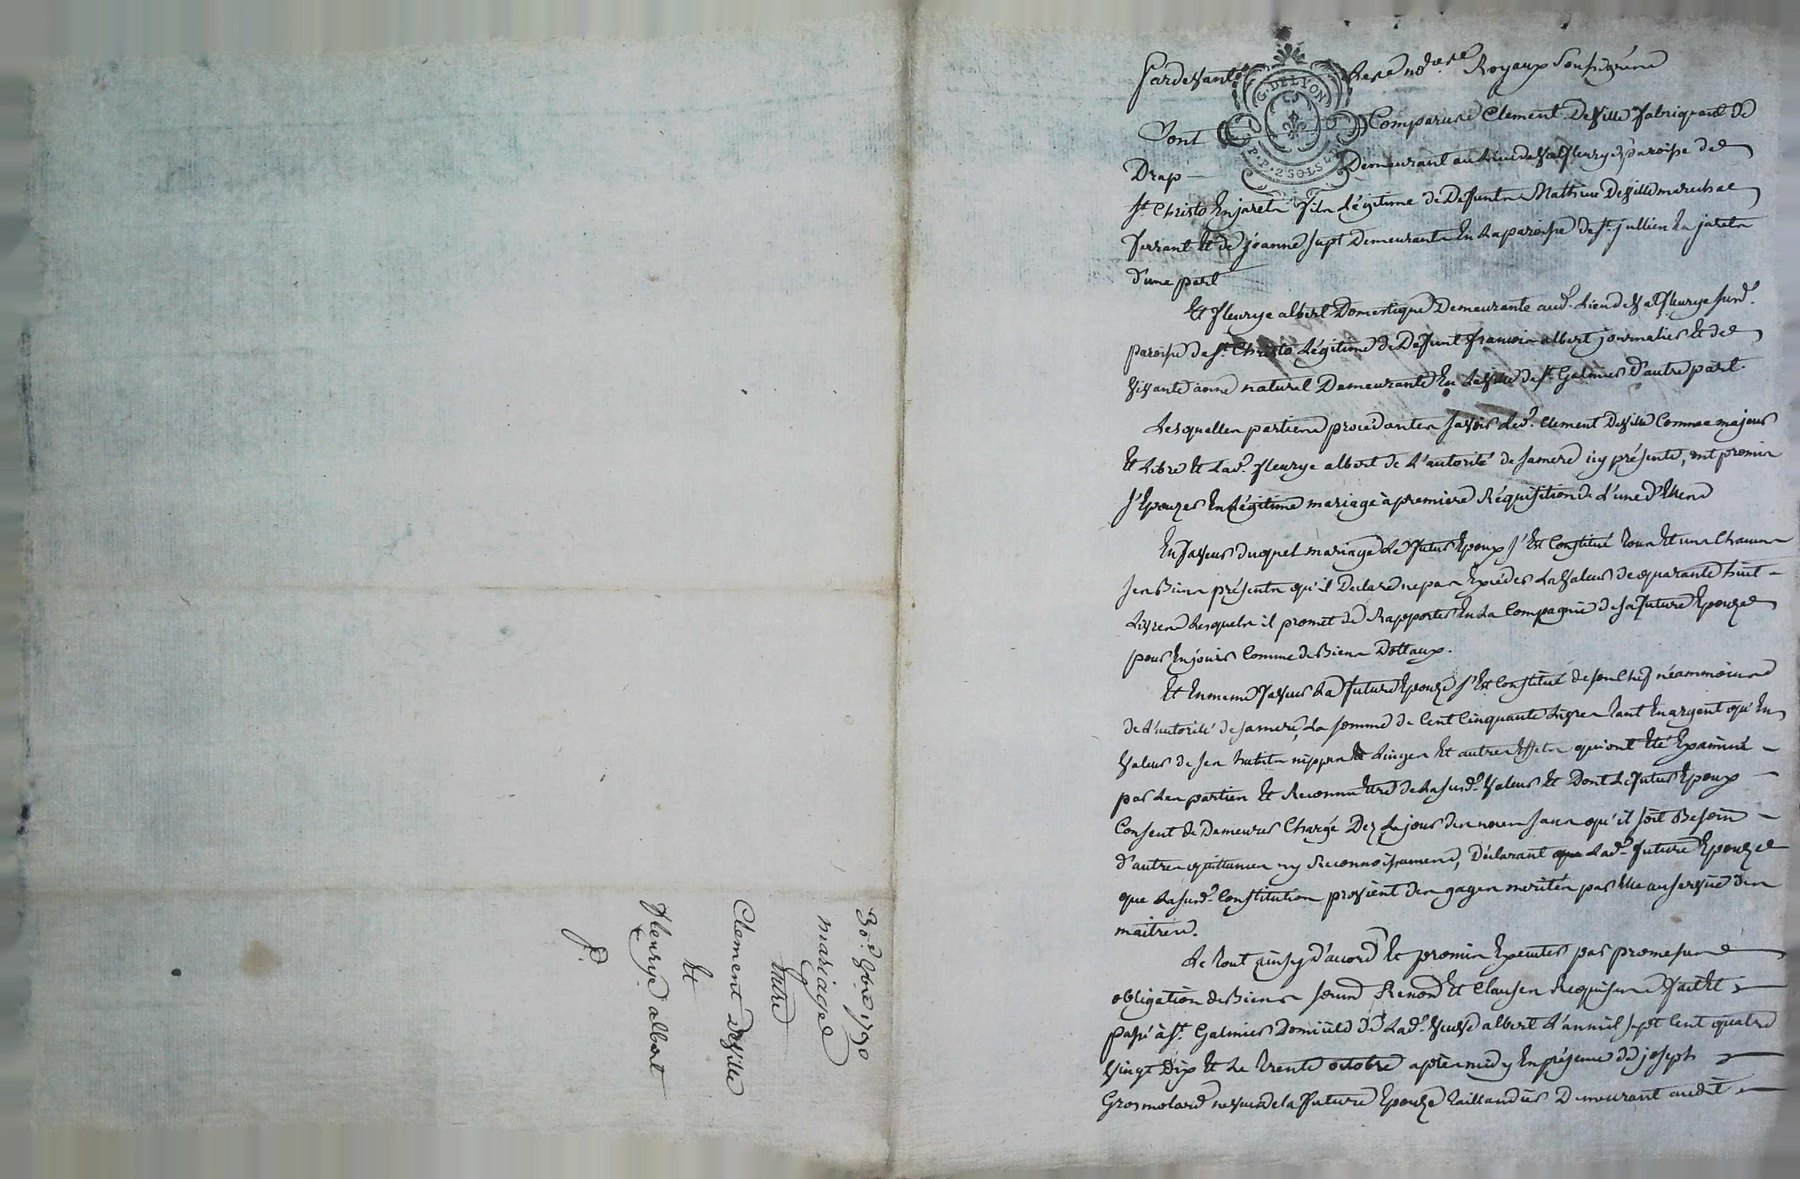 30e 8bre 1790
mariage
Entre
Clement Deville
Et
Fleurye albert
Pardevant les no.res Royaux Soussignés
G. DE LYON
P.P. 2 SOLS
Sont Comparus Clement Deville fabriquant de
Drap Demeurant au Lieu de Valfleurye paroisse de
St. Christo En jarets fils Légitime de Defunt Mathieu Deville marechal
ferrant Et de jeanne Demeurante En La paroisse de St. jullien En jarets
d'une part
Et fleurye albert Domestique Demeurante aud. Lieu de Valfleurye susd.
paroisse de St. Christo Légitime de Defunt françois albert journalier Et de
vivante anne naturel Demeurante En La Ville de St. Galmier D'autre part.
Lesquelles parties procedantes savoir Led. Clement Deville Comme majeur
Et Libre Et Lad. fleurye albert de L'autorité de sa mere icy présente, ont promis
s'Epouzer En Légitime mariage à premiere Réquisition de L'une d'Elles
En faveur duquel mariage Le futur Epoux s'Est Constitué tous Et uns Chacuns
ses Biens présents qu'il Declare ne pas Excéder La Valeur de quarante huit
Livres Lesquels il promet de Rapporter En La Compagnie de sa future Epouze
pour En jouir Comme de Biens Dottaux.
Et En meme faveur La future Epouze s'Est Constitué de son Chef néammoins
de L'autorité de sa mere, La somme de Cent Cinquante Livres tant En argent qu'En
Valeur de ses habits nippes Linges Et autres Effets qui ont Eté Examiné
par Les parties Et Reconnu Etre de La susd. Valeur Et Dont Le futur Epoux
Consent de Demeurer Chargé Dez Le jour des noces sans qu'il soit Besoin
d'autres quittances ny Reconnoissances, Déclarant Lad. future Epouze
que La susd. Constitution provient des gages merités par Elle au service des
maitres.
Le tout ainsy d'accord Et promis Executer par promesses
obligation de Biens Renon. Et Clauses Requises fait Et
passé à St. Galmier Domicile de Lad. Veuve albert L'an mil sept Cent quatre
Vingt Dix Et Le trente octobre après midy En présence de joseph
Grosmolard de la future Epouze taillandier Demeurant audit